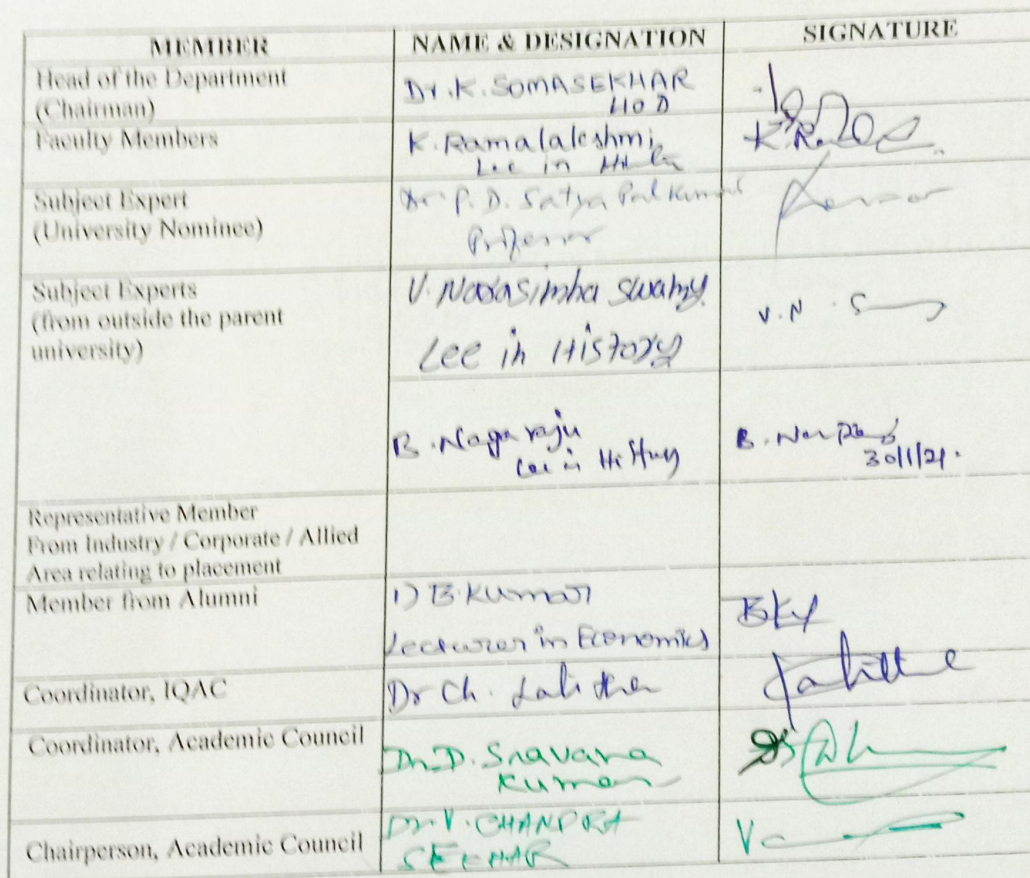 MEMBER NAME & DESIGNATION SIGNATURE
Head of the Department
(Chairman)
Dr. K. SOMASEKHAR
HOD
Faculty Members
K. Ramalakshmi
Lec in
Subject Expert
(University Nominee)
Dr. P. D. Satya Pal Kumar
Professor
Subject Experts
(from outside the parent
university)
V. Narasimha Swamy
Lec in History
V. N. S
B. Nagaraju
Lec in History
B.
30/1/21.
Representative Member
From Industry / Corporate / Allied
Area relating to placement
Member from Alumni
1) B. Kumar
Lecturer in Economics
Coordinator, IQAC
Dr Ch. Lalitha
Lalitha
Coordinator, Academic Council
Dr. D. Sravana
Kumar
Chairperson, Academic Council
Dr. V. CHANDRA
SEKHAR